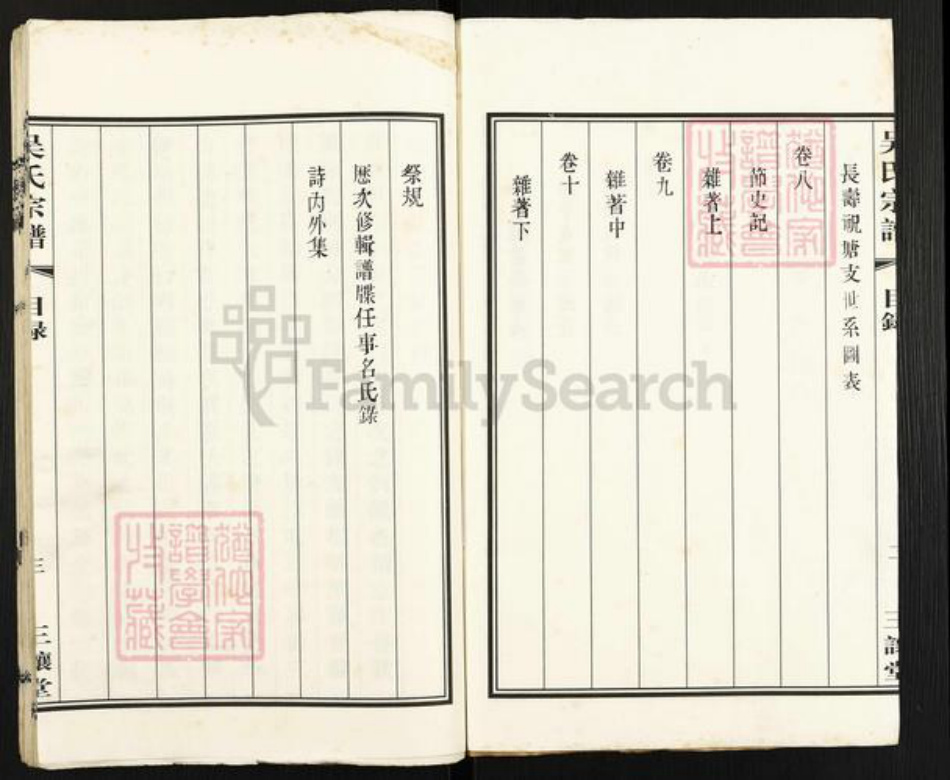 長壽祝塘支世系圖表
卷八
節史記
雜著上
卷九
雜著中
卷十
雜著下
吳氏宗譜
目錄
三讓堂
祭規
歷次修輯譜牒任事名氏錄
詩內外集
吳氏宗譜
目録
三
三讓堂
FamilySearch